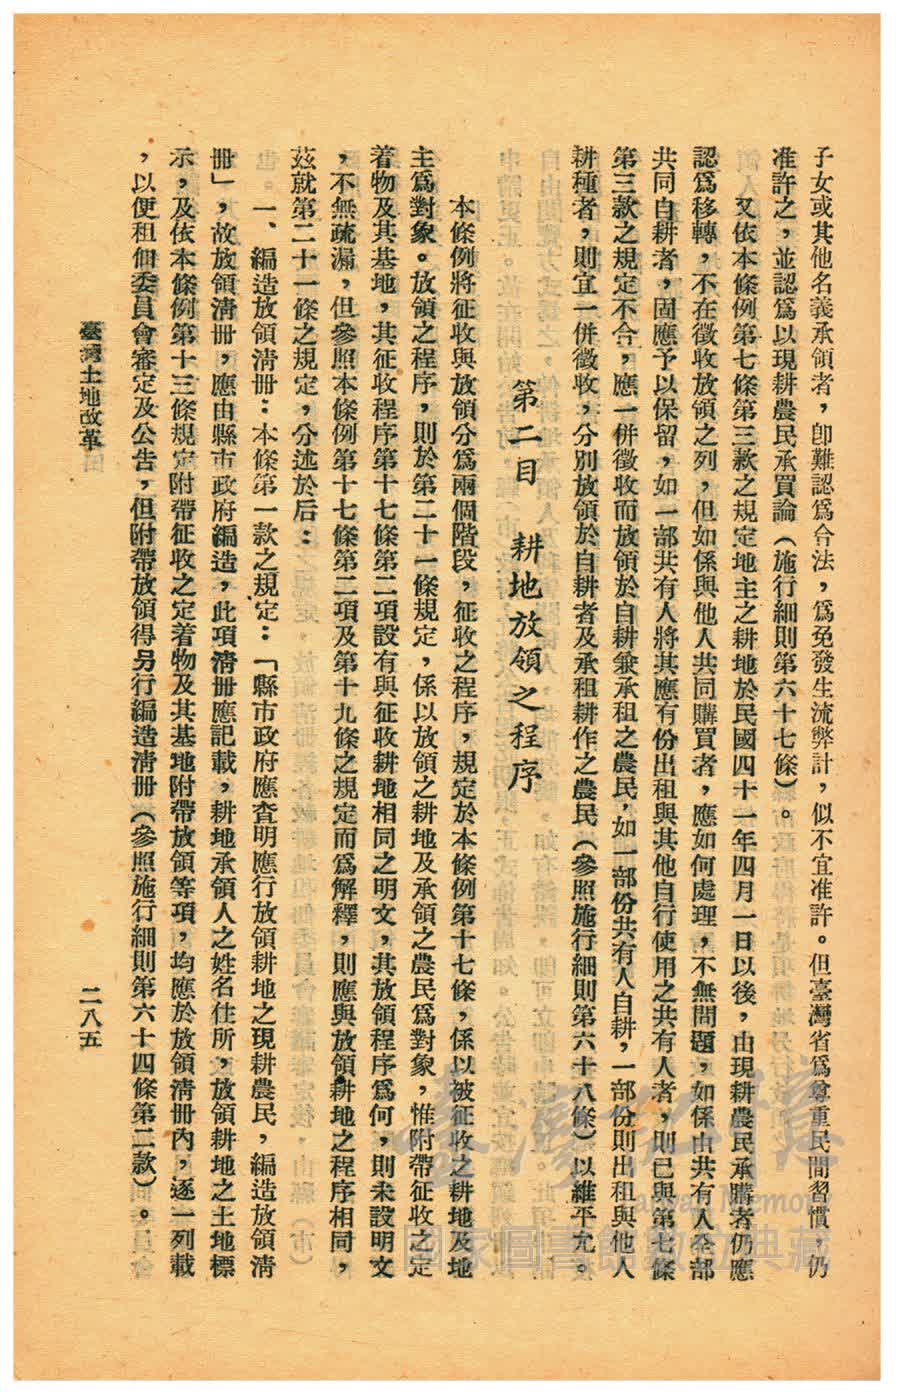 子女或其他名義承領者，卽難認爲合法，爲免發生流弊計，似不宜准許。但臺灣省爲尊重民間習慣，仍
准許之，並認爲以現耕農民承買論（施行細則第六十七條）。
又依本條例第七條第三款之規定地主之耕地於民國四十一年四月一日以後，由現耕農民承購者仍應
認爲移轉，不在徵收放領之列，但如係與他人共同購買者，應如何處理，不無問題，如係由共有人全部
共同自耕者，固應予以保留，如一部共有人將其應有份出租與其他自行使用之共有人者，則已與第七條
第三款之規定不合，應一併徵收而放領於自耕兼承租之農民，如一部份共有人自耕，一部份則出租與他人
耕種者，則宜一併徵收，分別放領於自耕者及承租耕作之農民（參照施行細則第六十八條）以維平允。
第二目　耕地放領之程序
本條例將征收與放領分爲兩個階段，征收之程序，規定於本條例第十七條，係以被征收之耕地及地
主爲對象。放領之程序，則於第二十一條規定，係以放領之耕地及承領之農民爲對象，惟附帶征收之定
着物及其基地，其征收程序第十七條第二項設有與征收耕地相同之明文，其放領程序爲何，則未設明文
，不無疏漏，但參照本條例第十七條第二項及第十九條之規定而爲解釋，則應與放領耕地之程序相同，
茲就第二十一條之規定，分述於后：
一、編造放領清册：本條第一款之規定：「縣市政府應查明應行放領耕地之現耕農民，編造放領清
册」，故放領清册，應由縣市政府編造，此項清册應記載，耕地承領人之姓名住所，放領耕地之土地標
示，及依本條例第十三條規定附帶征收之定着物及其基地附帶放領等項，均應於放領清册內，逐一列載
，以便租佃委員會審定及公告，但附帶放領得另行編造清册（參照施行細則第六十四條第二款）。
臺灣土地改革
二八五
臺灣記憶
Taiwan Memory
國家圖書館數位典藏